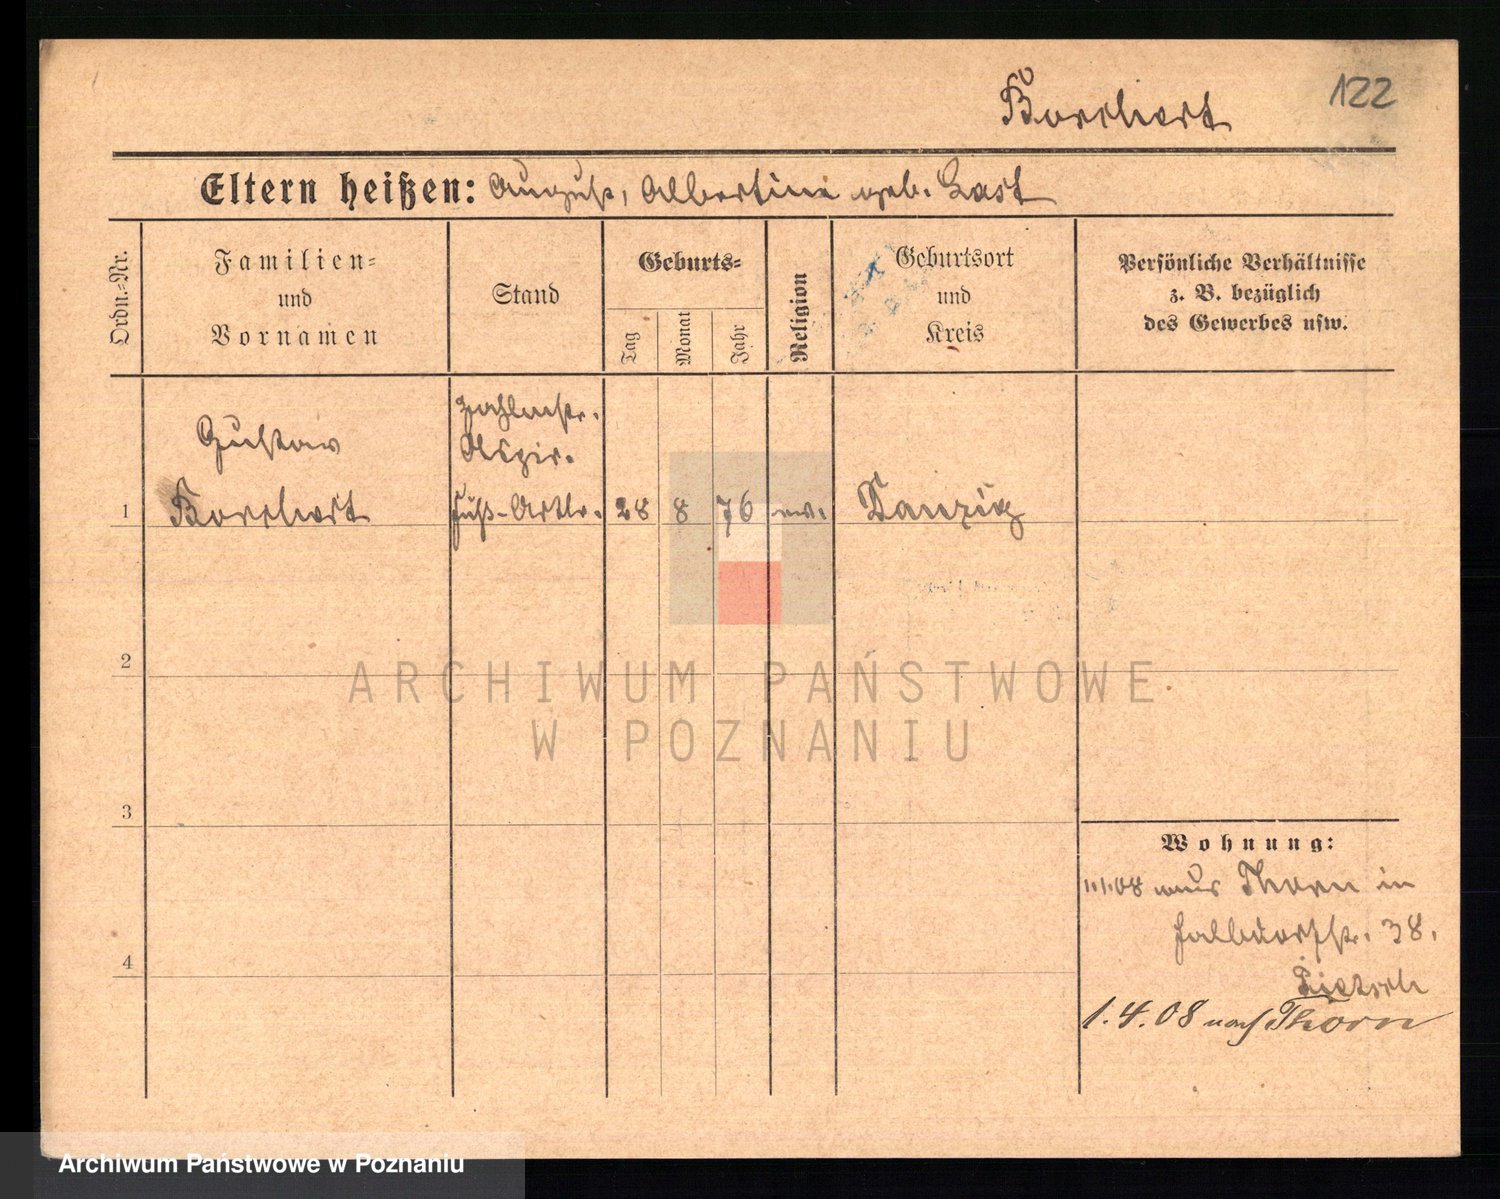 122
Borchert
Eltern heißen: August, Albertine geb. Last
Ordn.-Nr.
Familien-
und
Vornamen
Stand
Geburts-
Tag
Monat
Jahr
Religion
Geburtsort
und
Kreis
Persönliche Verhältnisse
z. B. bezüglich
des Gewerbes usw.
Gustav
Zahlmstr.
Aspir.
1 Borchert Fuß-Artlr. 28 8 76 ev. Danzig
2
ARCHIWUM PAŃSTWOWE
W POZNANIU
3
Wohnung:
1.1.08 aus Thorn in
38.
4
Pietsch
1.4.08 nach Thorn
Archiwum Państwowe w Poznaniu